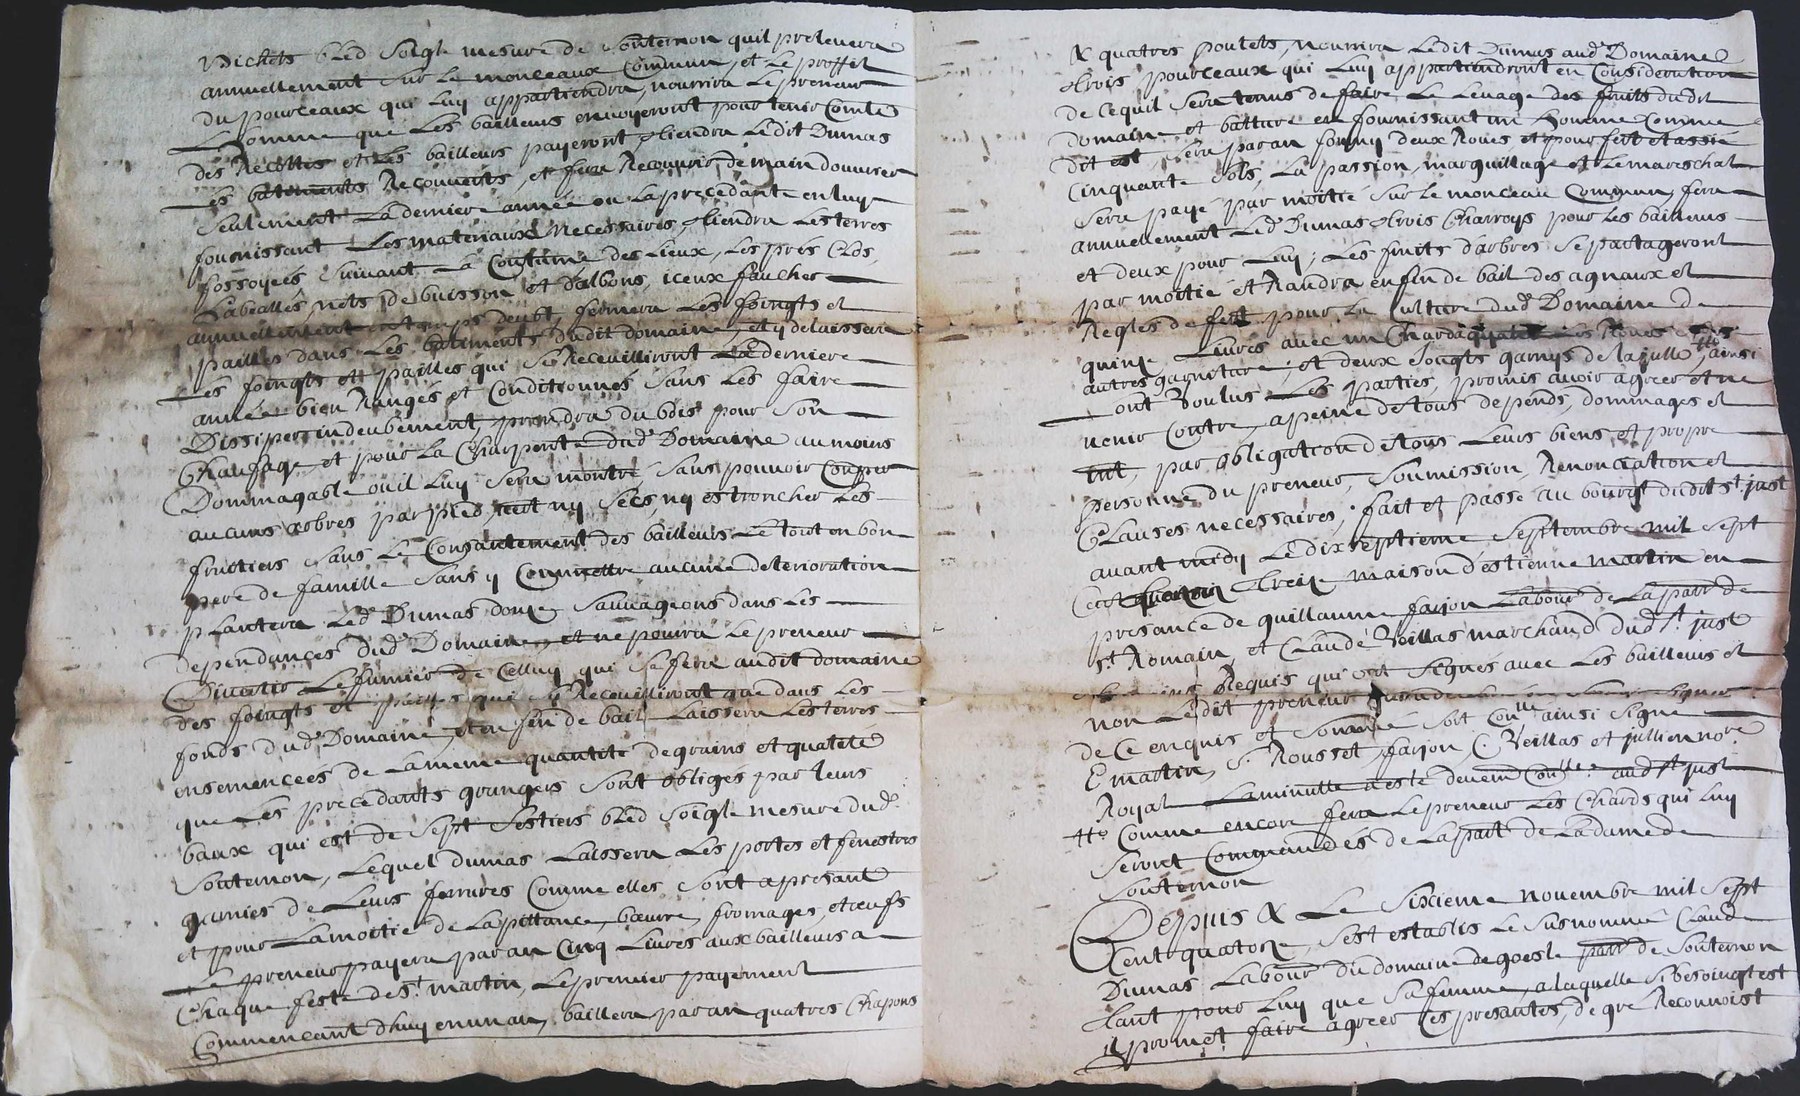 Bichets bled Soigle mesure de Souternon quil prelevera
annuellement sur le monceaux Commun, et le proffit
du pourceaux qui luy appartiendra, nourrira le preneur
Lhomme que Les bailleurs envoyeront pour tenir Comte
des Recoltes et Les bailleurs payeront, tiendra Ledit Dumas
Les batiments Recouverts, et fera Recouvrir de main douvrier
Seulement La derniere année ou La precedante en luy
fournissant Les materiaux Necessaires, tiendra Les terres
fossoyées Suivant La Coutume des Lieux, Les prés Clos,
nets de buisson et d'albons, iceux faucher
annuellement en temps deubt, fermera Les foingts et
pailles dans Les batiments dudit domaine, et y delaissera
Les foingts et pailles qui se Receuilliront La derniere
année bien Rangés et Conditionnés Sans Les faire
Dissiper indeubement, prendra du bois pour Son
Chaufage, et pour La Charpente dud. Domaine au moins
Dommagable ou il Luy Sera montré Sans pouvoir Couper
aucuns arbres par pied, ny Secs, ny estroncher Les
fruitiers Sans Le Consantement des bailleurs Le tout en bon
pere de famille Sans y Commettre aucune deterioration
plantera Led. Dumas douze Sauvageons dans Les
dependances dud. Domaine, et ne pourra Le preneur
Divertir Le fumier de Celluy qui Se fera audit domaine
des foingts et pailles qui sy Receuilliront que dans Les
fonds dud. Domaine, et en fin de bail Laissera Les terres
ensemencées de La meme quantité de grains et qualité
que Les precedants grangers Sont obligés par leurs
baux qui est de Sept Sestiers bled Soigle mesure dud.
Souternon, Lequel dumas Laissera Les portes et fenestres
garnies de Leurs ferrures Comme elles Sont apresant
et pour La moitié de La pittance, boeurre, fromages, et oeufs
Le preneur payera par an Cinq Livres aux bailleurs a
Chaque feste de St martin, Le premier payement
Commencant dhuy en un an, baillera par an quatres Chapons
& quatres poulets, nourrira Ledit Dumas aud. Domaine
trois pourceaux qui Luy appartiendront en Consideration
de Cequil Sera tenus de faire Le Levage des fruits dudit
domaine et batture en fournissant un homme Comme
dit est, Sera par an fourny deux Roues et pour fert et assié
Cinquante Sols, La passion, marguillage et Le mareschal
Sera payé par moitié Sur le monceau Commun, fera
annuellement Led. Dumas trois Charroys pour Les bailleurs
et deux pour Luy, Les fruits d'arbres Se partageront
par moitié et Randra en fin de bail des agnaux et
Regles de fert pour La Culture dud. Domaine de
quinze Livres avec un Char Les Roues
autres garniture, et deux Soigts garnys de la julle, ainsi
ont Voulus Les parties, promis avoir agreer et ne
venir Contre, a peine de tous depends, dommages et
int par obligation de tous Leurs biens et propre
personne du preneur, Soumission, Renonciation et
Clauses necessaires, fait et passé au bourgt dudit St just
avant midy Le dix septieme Septembre mil Sept
Cent treize maison d'estienne martin en
presance de guillaume farjon Labour de La parr de
St Romain, et Claude Veillas marchand dud. St just
temoins Requis qui ont Signés avec Les bailleurs et
non Ledit preneur pour ne Scavoir Signer
de Ce enquis et Sommé Soit Conlle ainsi Signé
E martin, S. Rousset, farjon, C. Veillas et jullien nore
Royal La minutte a este devem. Conlle. aud St just
Comme encore fera Le preneur Les Chards qui Luy
Seront Commandés de La part de La dame de
Souternon
Depuis & Le Sixieme novembre mil Sept
Cent quatorze, S'est establis Le Susnommé Claude
Dumas Labour du domaine de goesle parr de Souternon
tant pour Luy que Sa femme, a laquelle Si besoingt est
il promet faire agreer Ces presantes, de gré Reconnoist